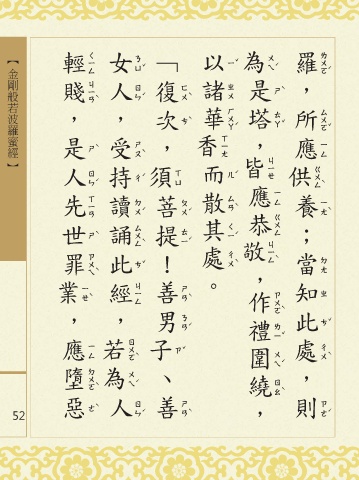 羅，所應供養；當知此處，則
為是塔，皆應恭敬，作禮圍繞，
以諸華香而散其處。
「復次，須菩提！善男子、善
女人，受持讀誦此經，若為人
輕賤，是人先世罪業，應墮惡
【金剛般若波羅蜜經】
52